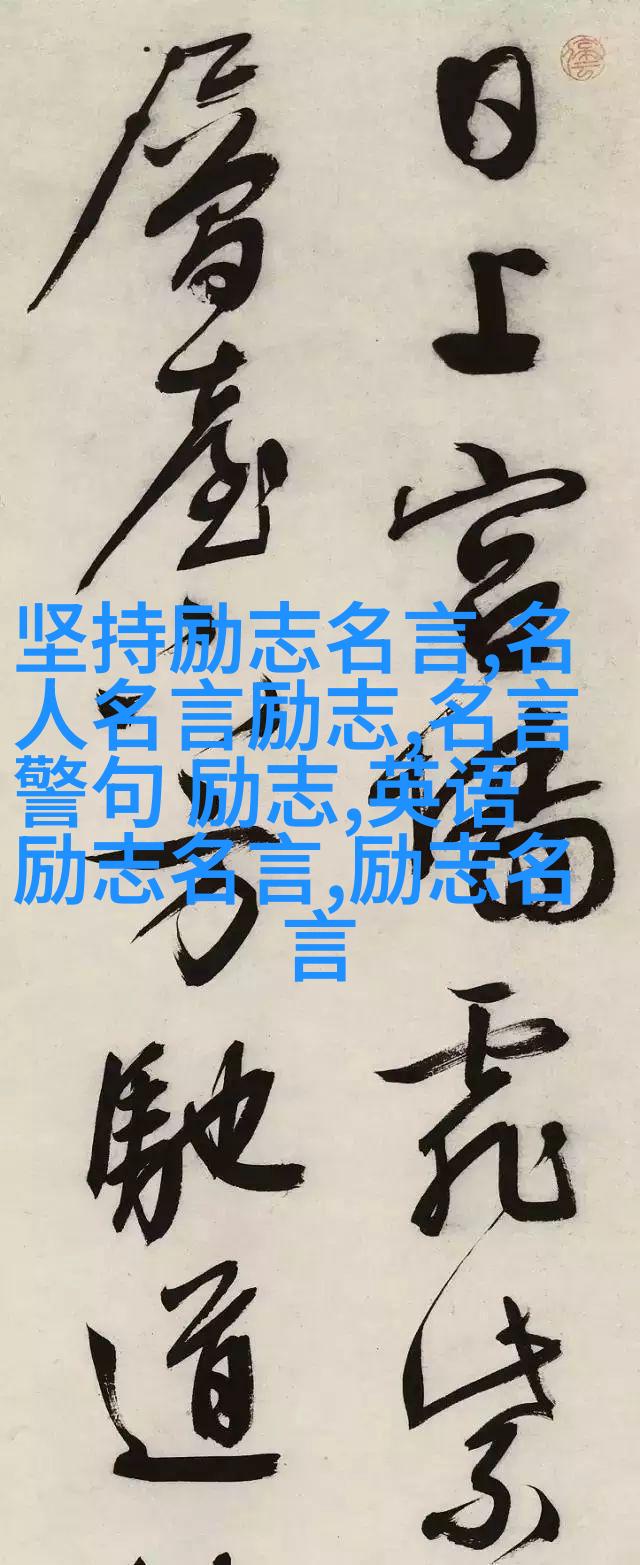 日上宮紫
層臺馳道
坚持励志名言,名
人名言励志,名言
警句 励志,英语
励志名言,励志名
言